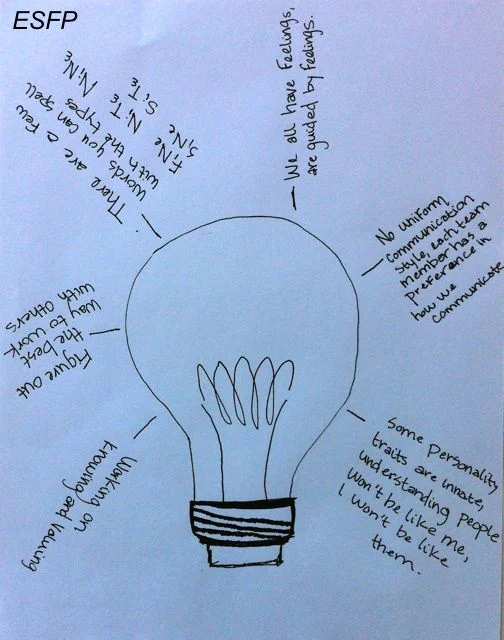 ESFP
We all have Feelings,
are guided by feelings.
No uniform
communication
style, each team
member has a
preference in
how we
communicate
Some personality
traits are innate,
understanding people
won't be like me,
I won't be like
them.
Working on
knowing and Valuing
Figure out
the best
way to work
with others
There are a few
words you can spell
with the types
FiNe NiTe NiNe
SiNe SiTe